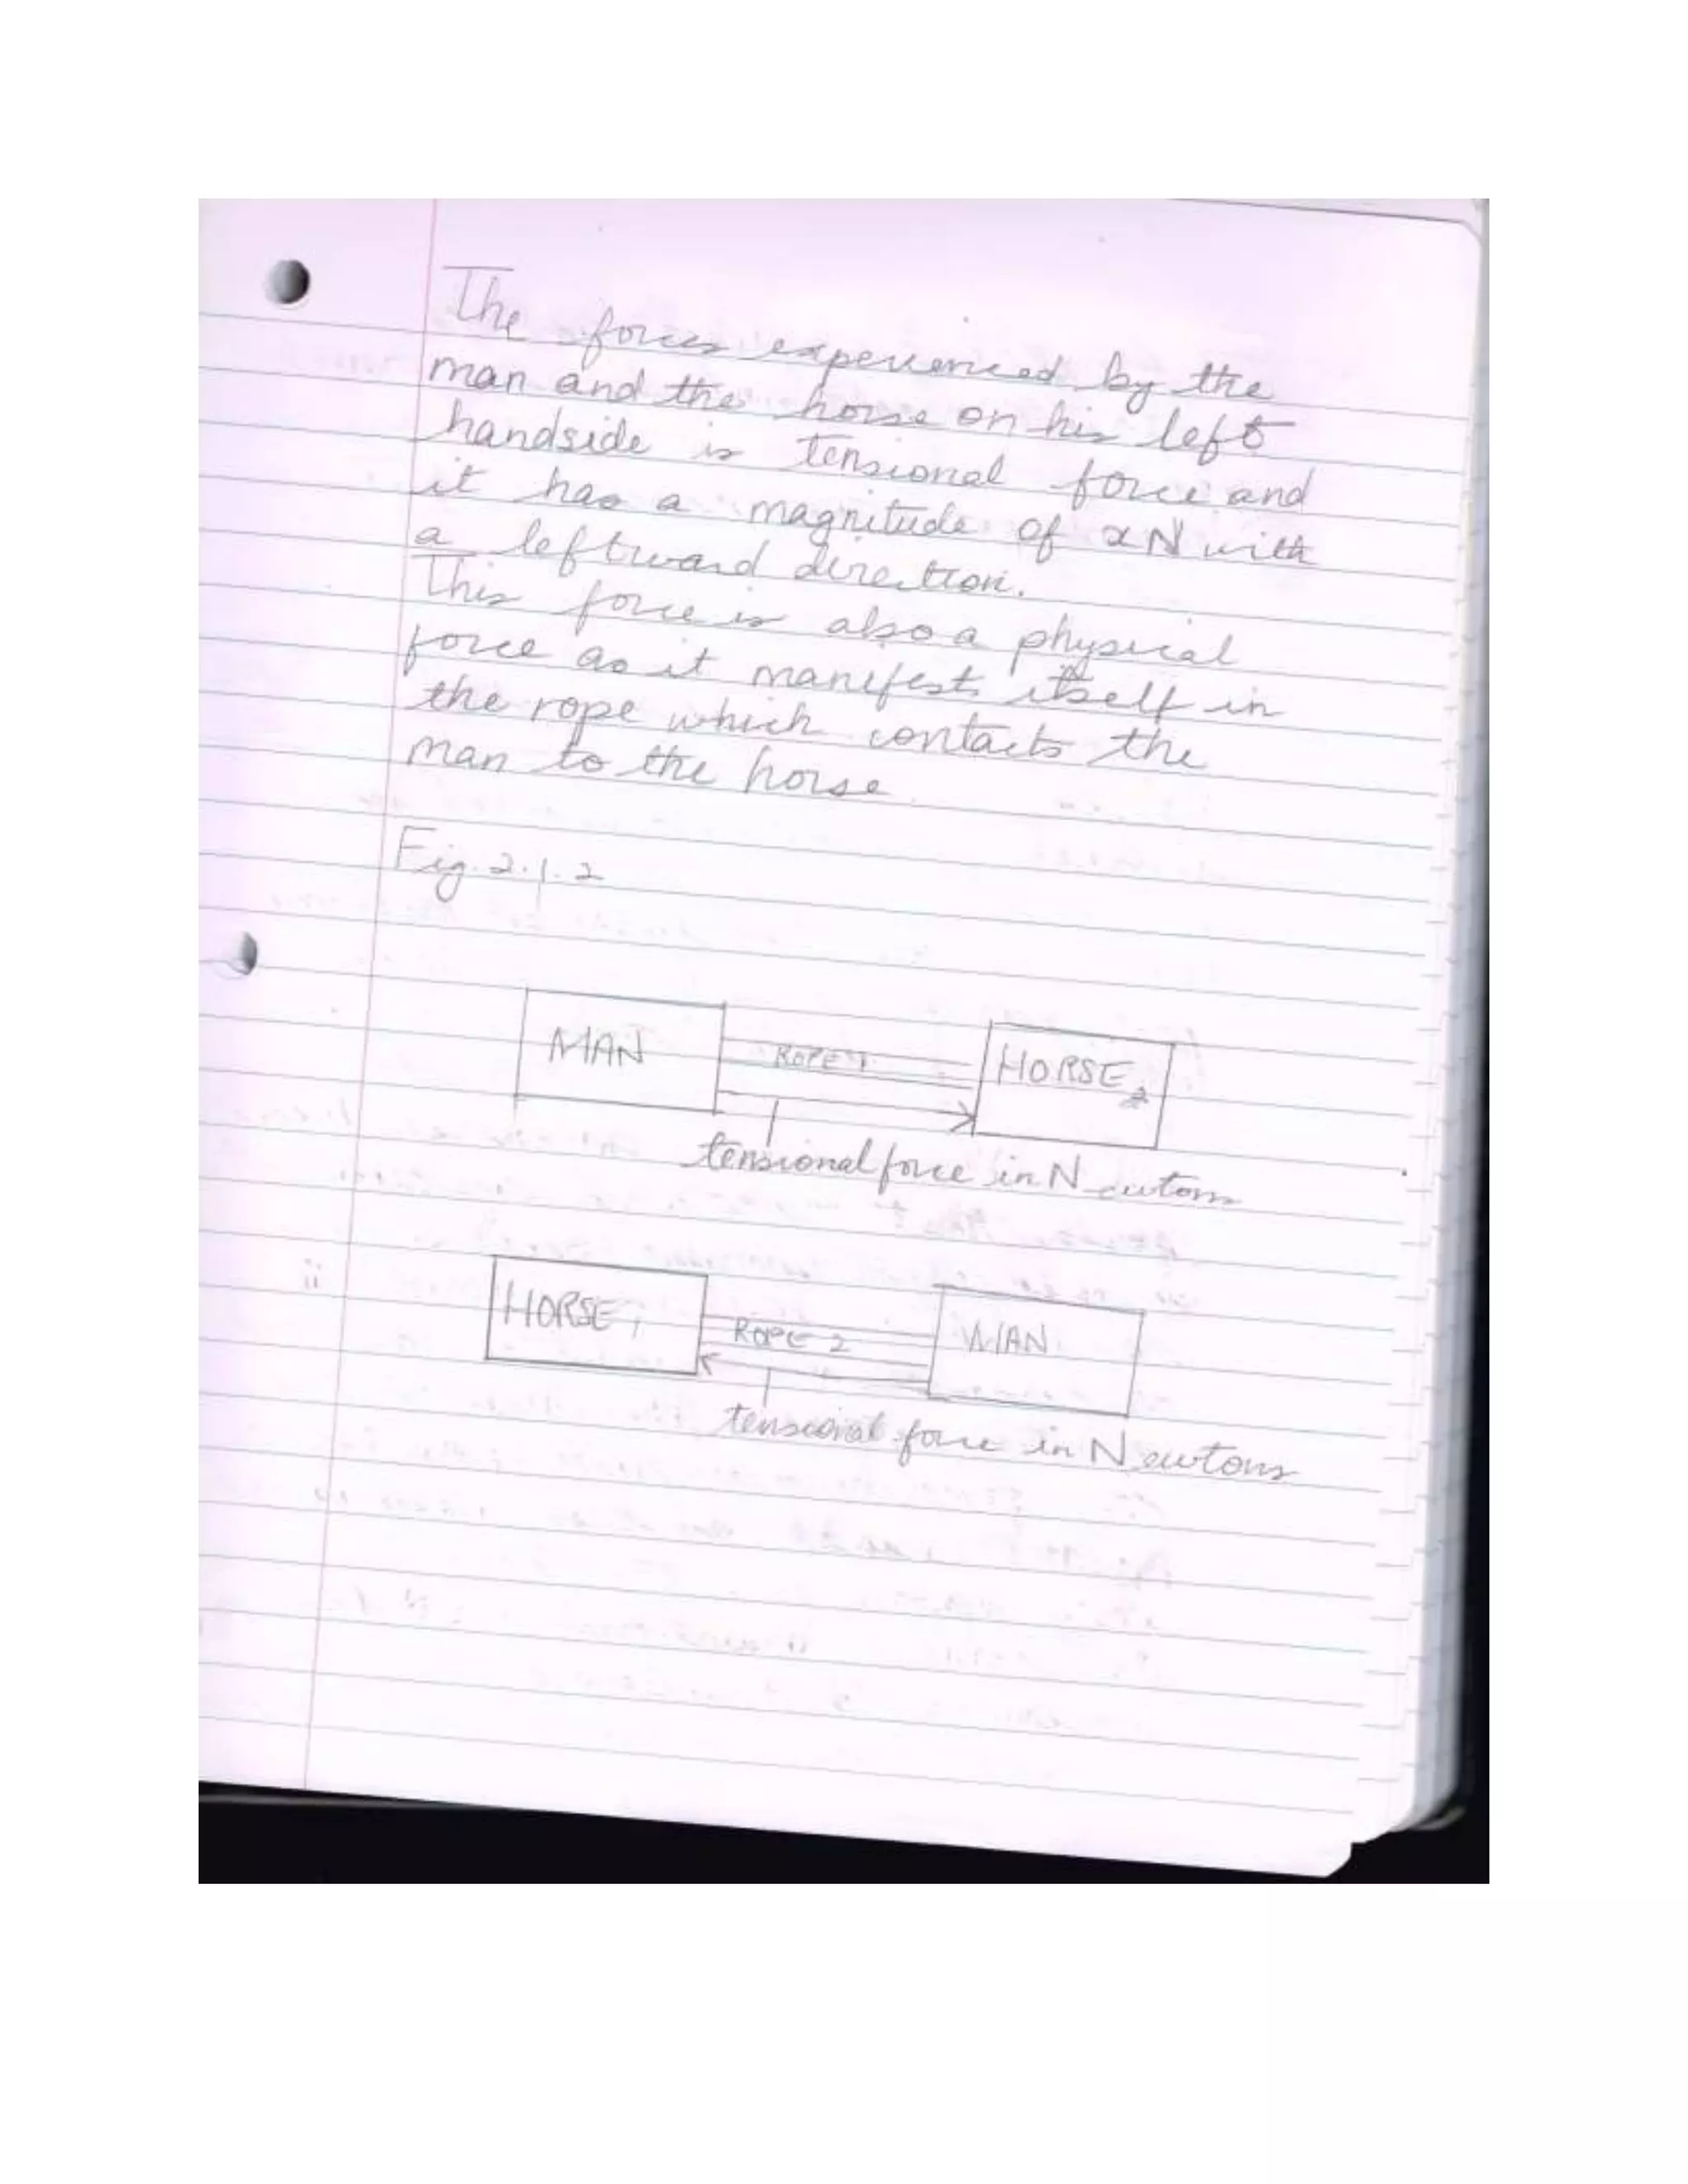 The forces experienced by the
man and the horse on his left
handside is tensional force and
it has a magnitude of xN with
a leftward direction.
This force is also a physical
force as it manifests itself in
the rope which contacts the
man to the horse
Fig. 2.1.2
MAN ROPE 1 HORSE 2
tensional force in Newtons
ii
HORSE 1 ROPE 2 MAN
tensional force in Newtons